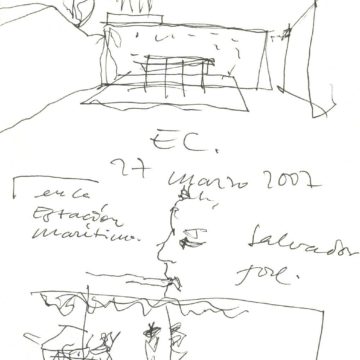 EC.
27 marzo 2007
en la
Estación
marítima.
Salvador
José.